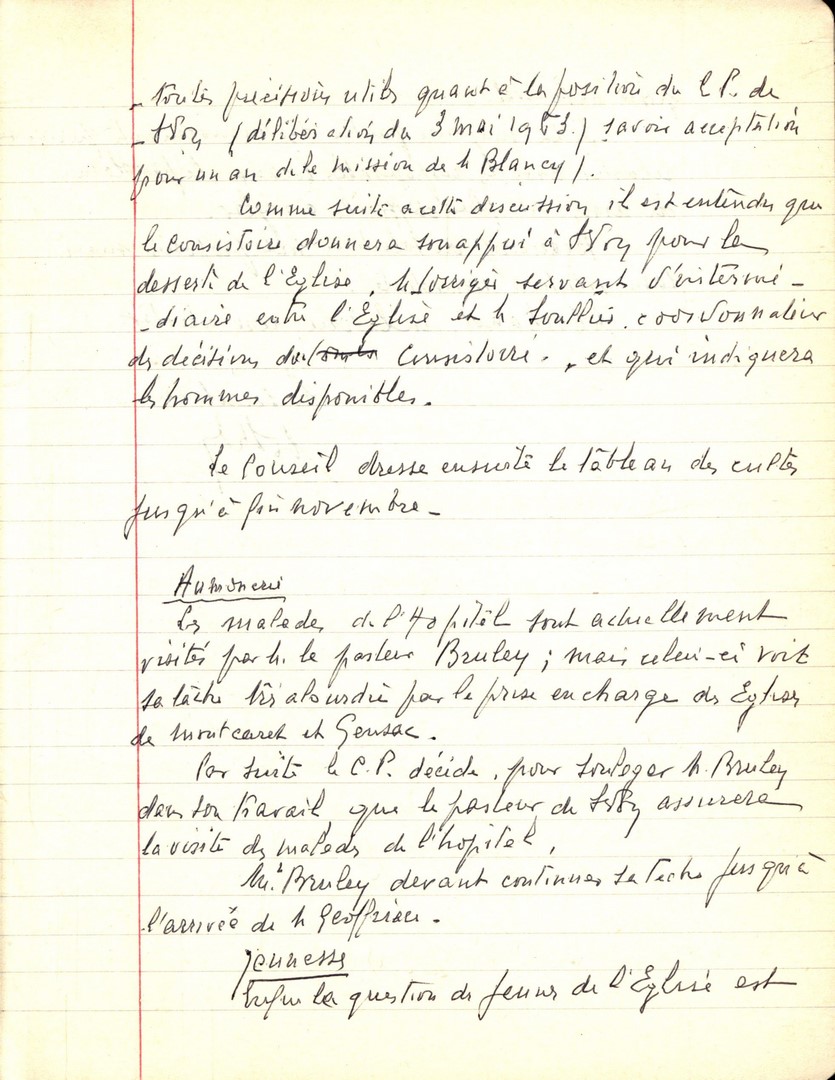 - toutes précisions utiles quant à la position du C.P. de
- Ste Foy (délibération du 3 mai 1963.) savoir acceptation
pour un an de le mission de M Blancy).
Comme suite a cette discussion il est entendu que
le consistoire donnera son appui à Ste Foy pour la
desserte de l'Eglise, M servant d'intermé-
-diaire entre l'Eglise et M coordonnateur
des décisions du Consistoire. , et qui indiquera
les hommes disponibles.
Le Conseil dresse ensuite le tableau des cultes
jusqu'à fin novembre -
Aumônerie
Les malades de l'Hopitâl sont actuellement
visités par M. le pasteur Bruley ; mais celui-ci voit
sa tâche très alourdie par le prise en charge des Eglises
de Montcaret et Gensac.
Par suite le C.P. décide, pour soulager M. Bruley
dans son travail, que le pasteur de Ste Foy assurera
la visite des malades de l'hopital,
Mr Bruley devant continuer sa tache jusqu'à
l'arrivée de M
Jeunesse
Enfin la question des jeunes de l'Eglise est